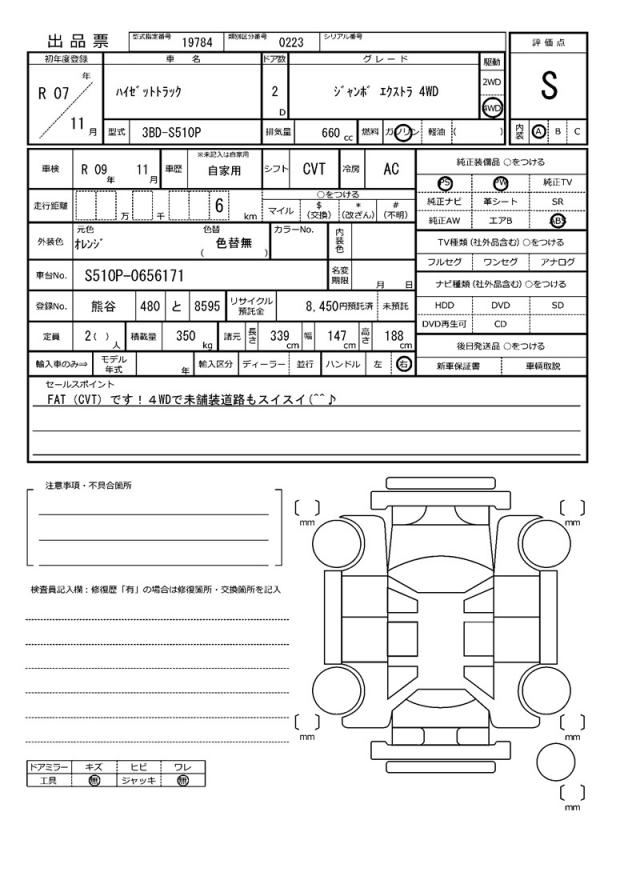 出品票 型式指定番号 19784 類別区分番号 0223 シリアル番号
初年度登録 車名 ドア数 グレード 駆動 評価点
R 07 年 11 月 ハイゼットトラック 2 D ジャンボ エクストラ 4WD 2WD 4WD S
型式 3BD-S510P 排気量 660 cc 燃料 ガソリン 軽油 ( ) 内装 A B C
車検 R 09 年 11 月 車歴 ※未記入は自家用 自家用 シフト CVT 冷房 AC 純正装備品 ○をつける
PS PW 純正TV
走行距離 万 千 6 km ○をつける
マイル $(交換) *(改ざん) #(不明)
純正ナビ 革シート SR
純正AW エアB ABS
外装色 元色 オレンジ 色替 ( 色替無 ) カラーNo. 内装色
TV種類 (社外品含む) ○をつける
フルセグ ワンセグ アナログ
車台No. S510P-0656171 名変期限 月 日
ナビ種類 (社外品含む) ○をつける
登録No. 熊谷 480 と 8595 リサイクル預託金 8,450円預託済 未預託
HDD DVD SD
DVD再生可 CD
定員 2( ) 人 積載量 350 kg 諸元 長さ 339 cm 幅 147 cm 高さ 188 cm
後日発送品 ○をつける
輸入車のみ⇒ モデル年式 年 輸入区分 ディーラー 並行 ハンドル 左 右
新車保証書 車輌取説
セールスポイント
FAT (CVT) です！４WDで未舗装道路もスイスイ(^^♪
注意事項・不具合箇所
mm
mm
検査員記入欄：修復歴「有」の場合は修復箇所・交換箇所を記入
mm
mm
ドアミラー キズ ヒビ ワレ
工具 無 ジャッキ 無
mm